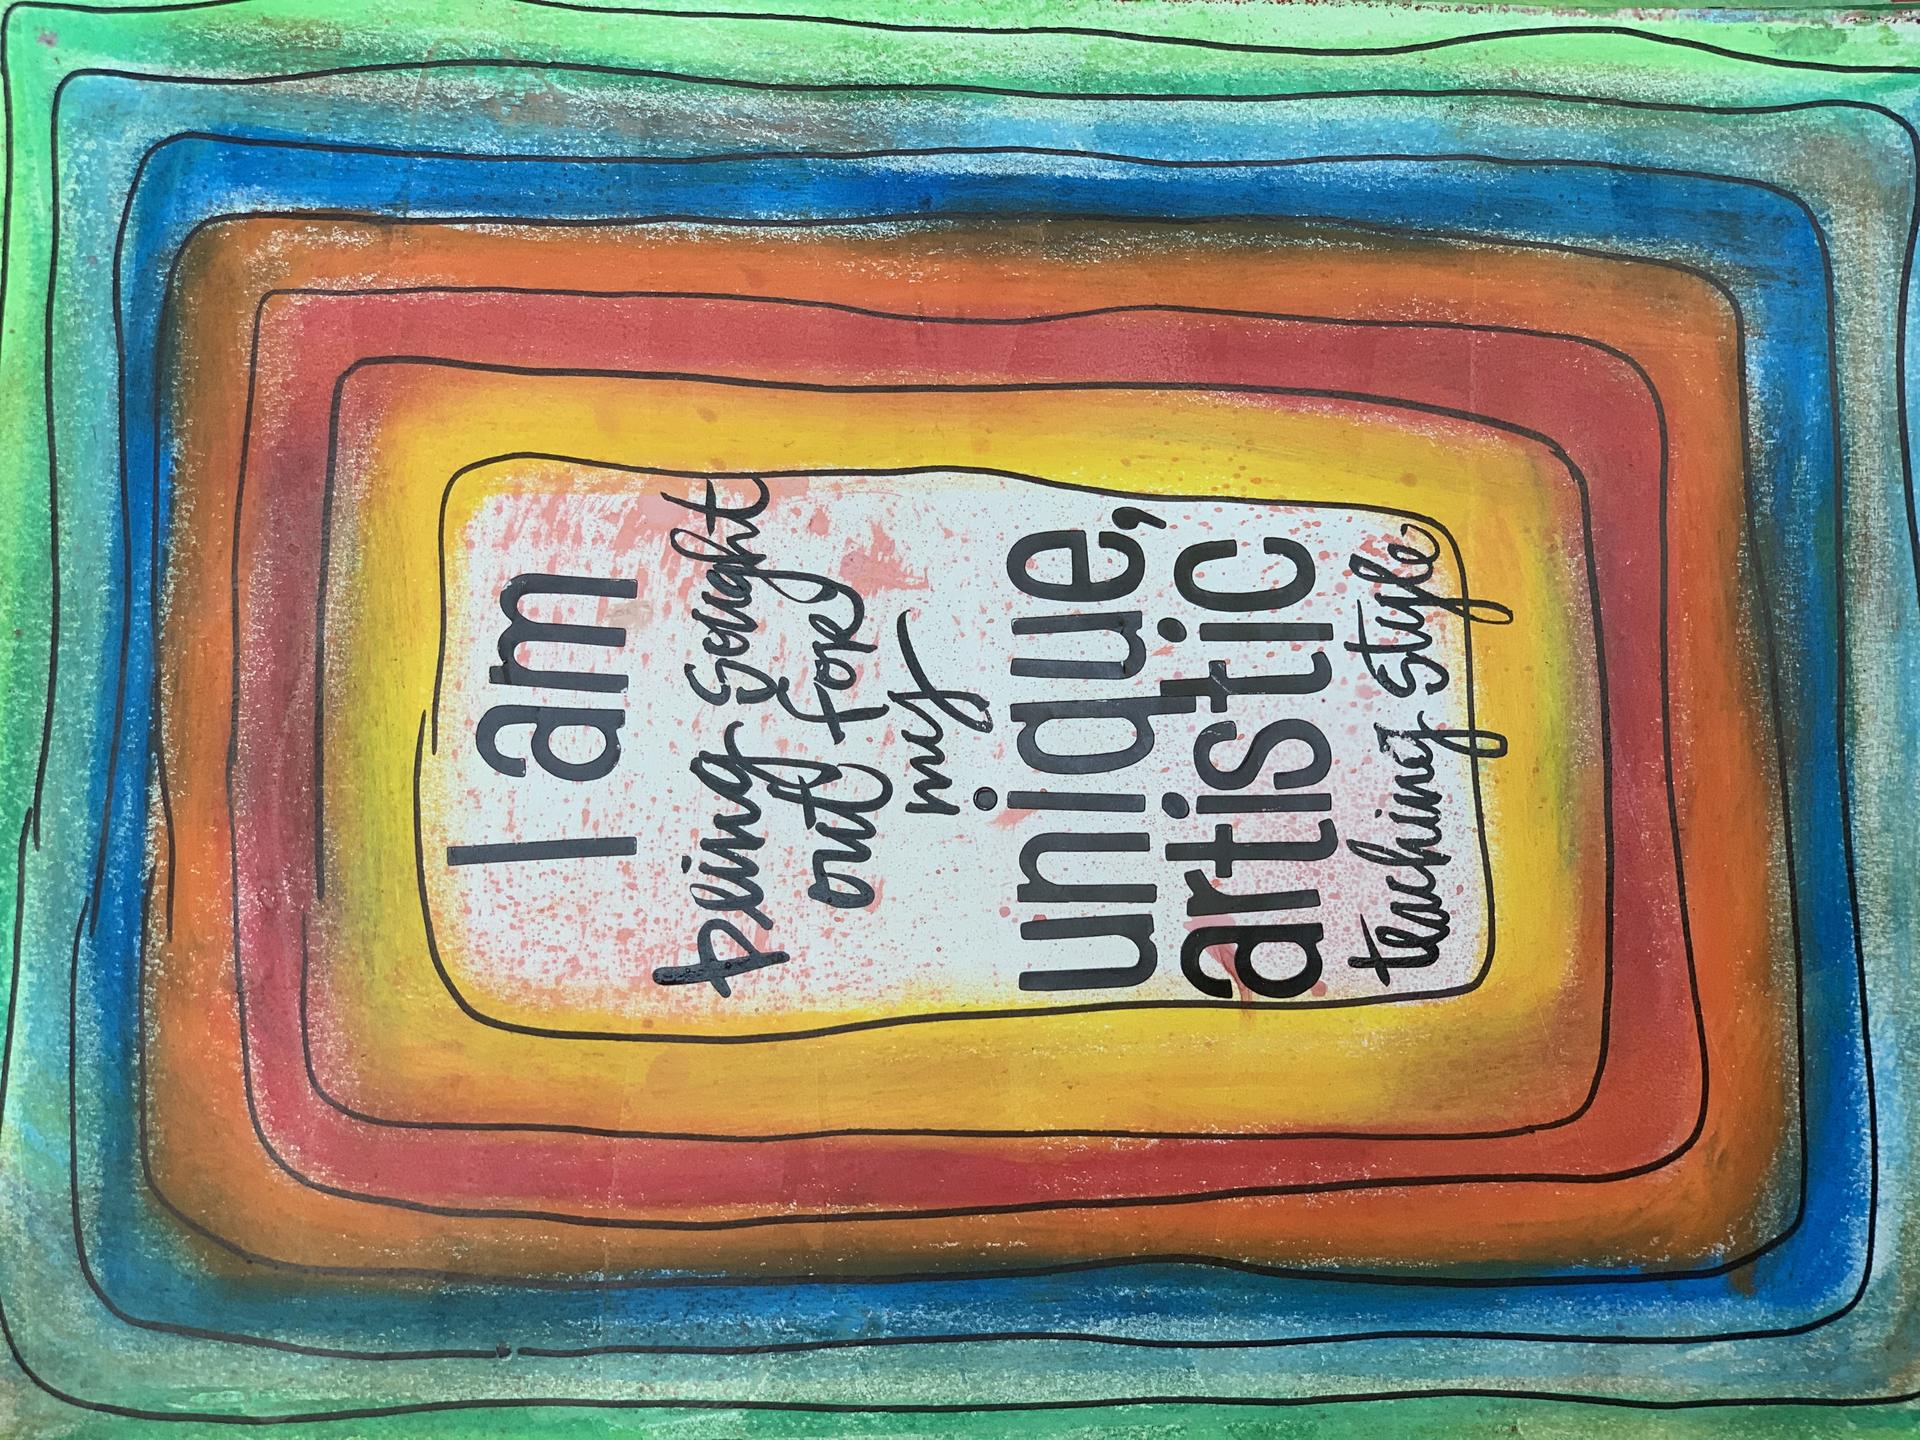 I am
being sought
out for
my
unique,
artistic
teaching style